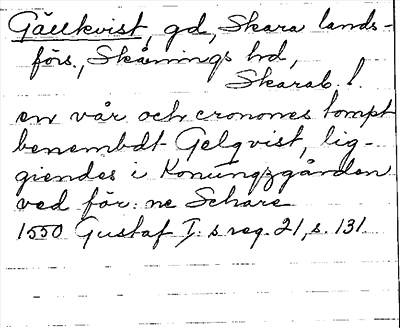 Gällkvist, gd, Skara lands-
förs., Skånings hd,
Skarab. l.
en vår och cronones tompt
benembdt Gelqvist, lig-
giendes i Konungzgården
ved för: ne Schare
1550 Gustaf I: s reg. 21, s. 131.